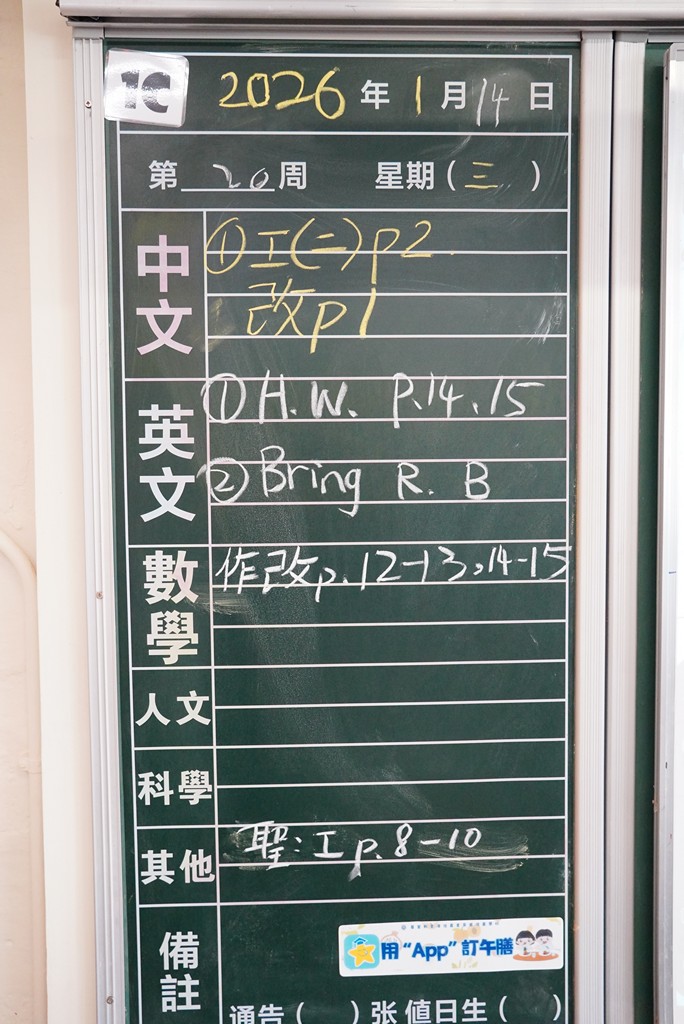 1C
2026年1月14日
第20周 星期(三)
中文
①工(二)p2
改p1
英文
①H.W. P.14.15
②Bring R. B
數學
作改p.12-13,14-15
人文
科學
其他
聖:工p.8-10
備註
用“App”訂午膳
通告( )張 值日生( )